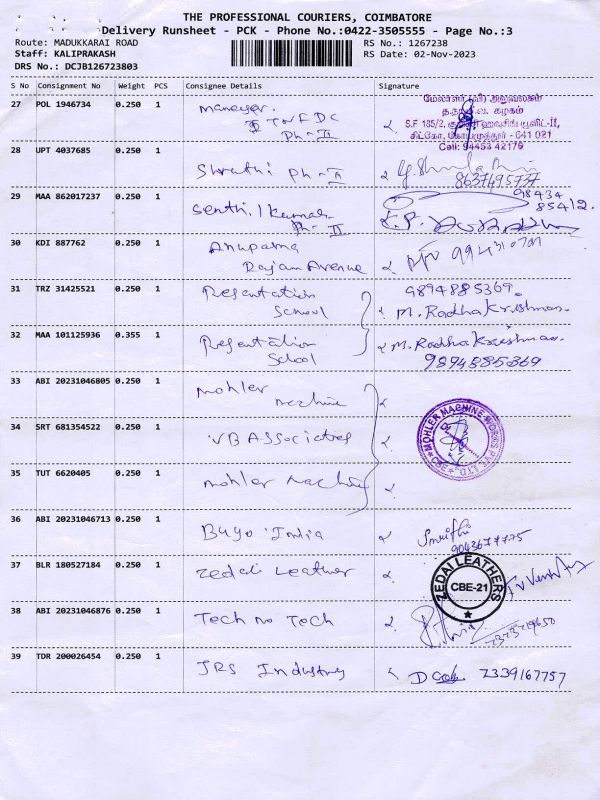 THE PROFESSIONAL COURIERS, COIMBATORE
Delivery Runsheet - PCK - Phone No.:0422-3505555 - Page No.:3
Route: MADUKKARAI ROAD
RS No.: 1267238
Staff: KALIPRAKASH
RS Date: 02-Nov-2023
DRS No.: DCJB126723803
S No Consignment No Weight PCS Consignee Details Signature
27 POL 1946734 0.250 1 TNFDC
Ph-II
மேலாளர் (வீ) அலுவலகம்
S.F 185/2,
சிட்கோ, கோயமுத்தூர் - 641 021
Cell: 94453 42179
28 UPT 4037685 0.250 1 Shruthi Ph-II
8637495737
29 MAA 862017237 0.250 1 Senthil kumar
Ph-II
98434
85412
30 KDI 887762 0.250 1 Anupama
Rajam Avenue
31 TRZ 31425521 0.250 1 Resentation
School
9894885369
M. Radha Krishnan
32 MAA 101125936 0.355 1 Resentation
School
M. Radha Krishnan
9894885369
33 ABI 20231046805 0.250 1 Mohler
Machine
34 SRT 681354522 0.250 1 VB Associates
MOHLER MACHINE WORKS PVT. LTD.
CBE
35 TUT 6620405 0.250 1 Mohler Machine
36 ABI 20231046713 0.250 1 Buyo India
9043677775
37 BLR 180527184 0.250 1 Zedai Leather
ZEDAI LEATHERS
CBE-21
38 ABI 20231046876 0.250 1 Tech no Tech
39 TDR 200026454 0.250 1 JRS Industry
7339167757